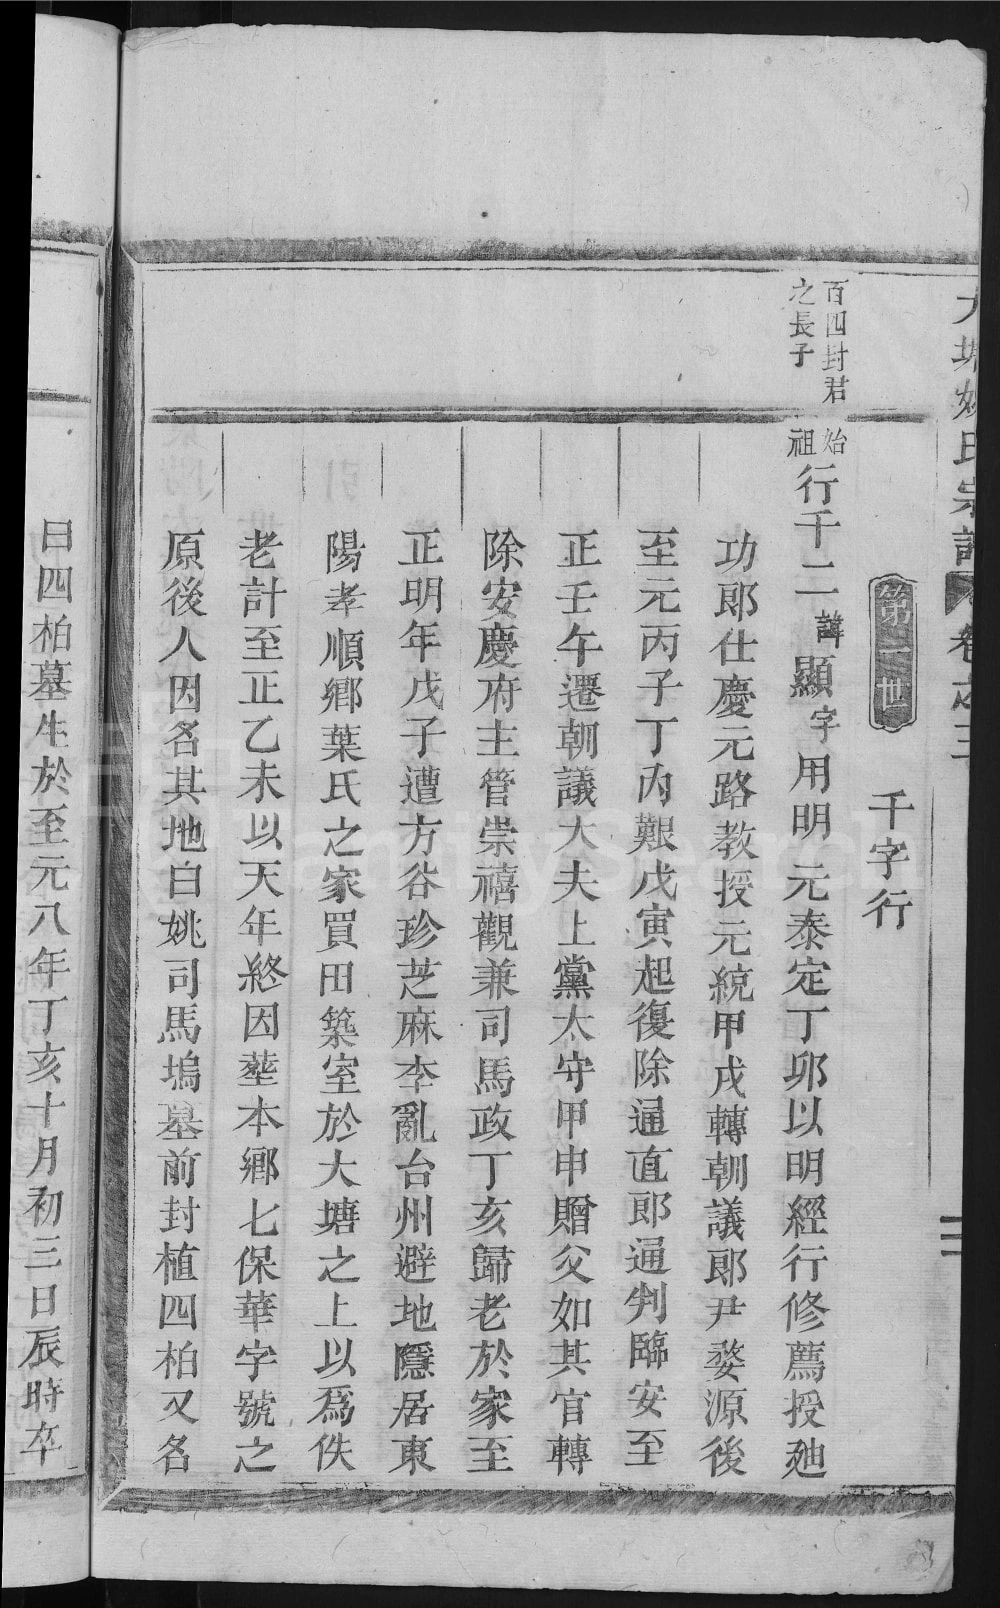 大塘姚氏宗譜 卷之三
第二世 千字行
百四封君
之長子
始祖行千二諱顯字用明元泰定丁卯以明經行修薦授廸
功郎仕慶元路教授元統甲戌轉朝議郎尹婺源後
至元丙子丁內艱戊寅起復除通直郎通判臨安至
正壬午遷朝議大夫上黨太守甲申贈父如其官轉
除安慶府主管崇禧觀兼司馬政丁亥歸老於家至
正明年戊子遭方谷珍芝麻李亂台州避地隱居東
陽孝順鄉葉氏之家買田築室於大塘之上以爲佚
老計至正乙未以天年終因塟本鄉七保華字號之
原後人因名其地曰姚司馬塢墓前封植四柏又名
曰四柏墓生於至元八年丁亥十月初三日辰時卒